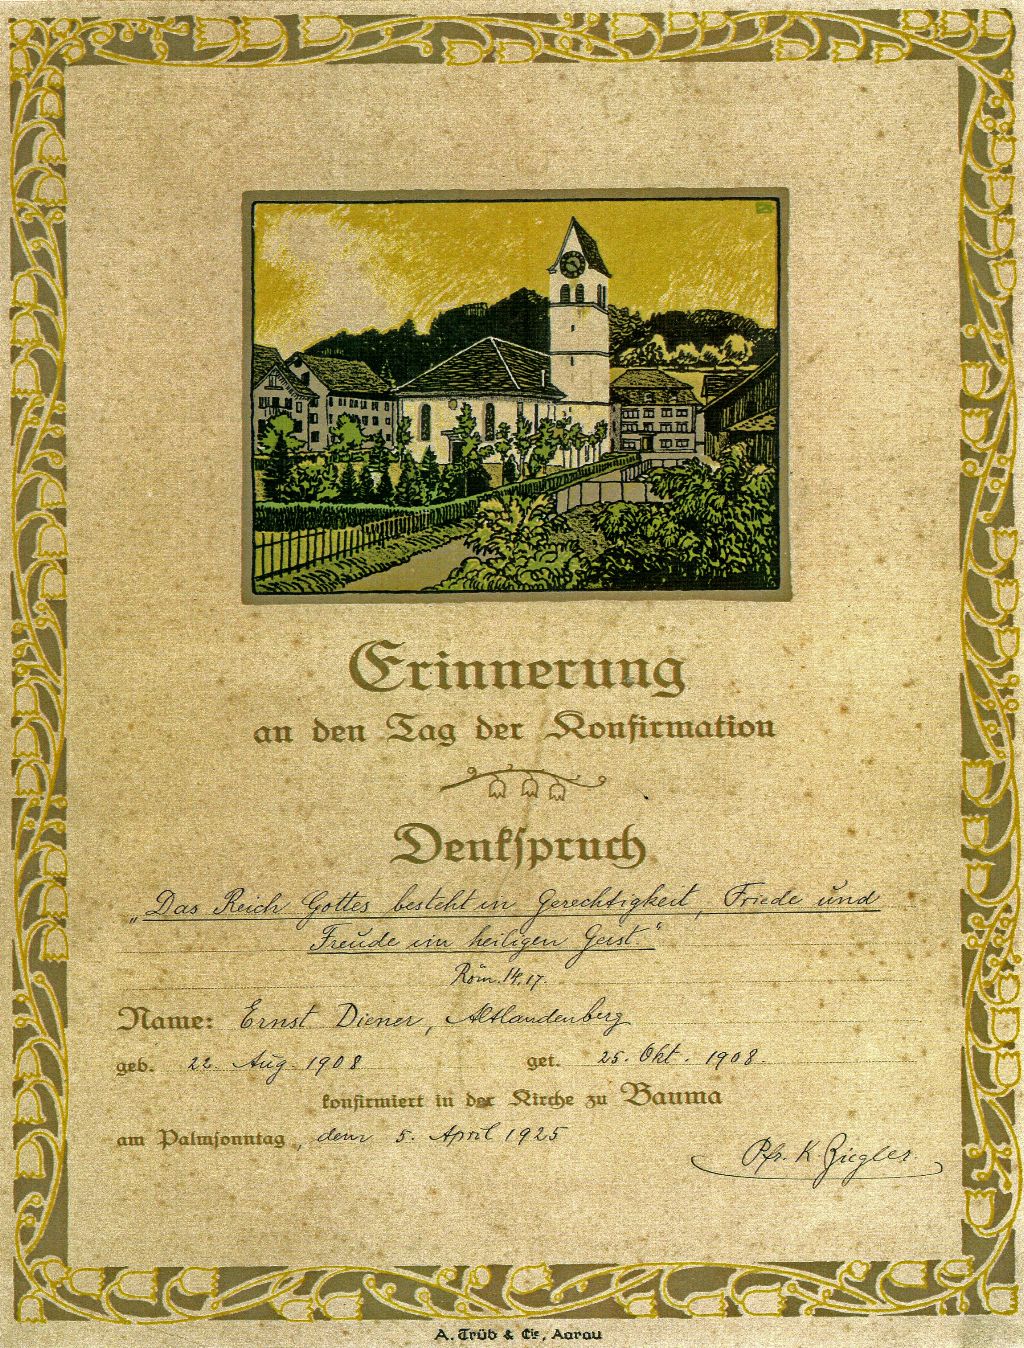 Erinnerung
an den Tag der Konfirmation
Denkspruch
„Das Reich Gottes besteht in Gerechtigkeit, Friede und
Freude im heiligen Geist."
Röm. 14,17.
Name: Ernst Diener, Altlandenberg
geb. 22. Aug. 1908 get. 25. Okt. 1908.
konfirmiert in der Kirche zu Bauma
am Palmsonntag, den 5. April 1925
Pfr. K. Ziegler.
A. Trüb & Cie, Aarau